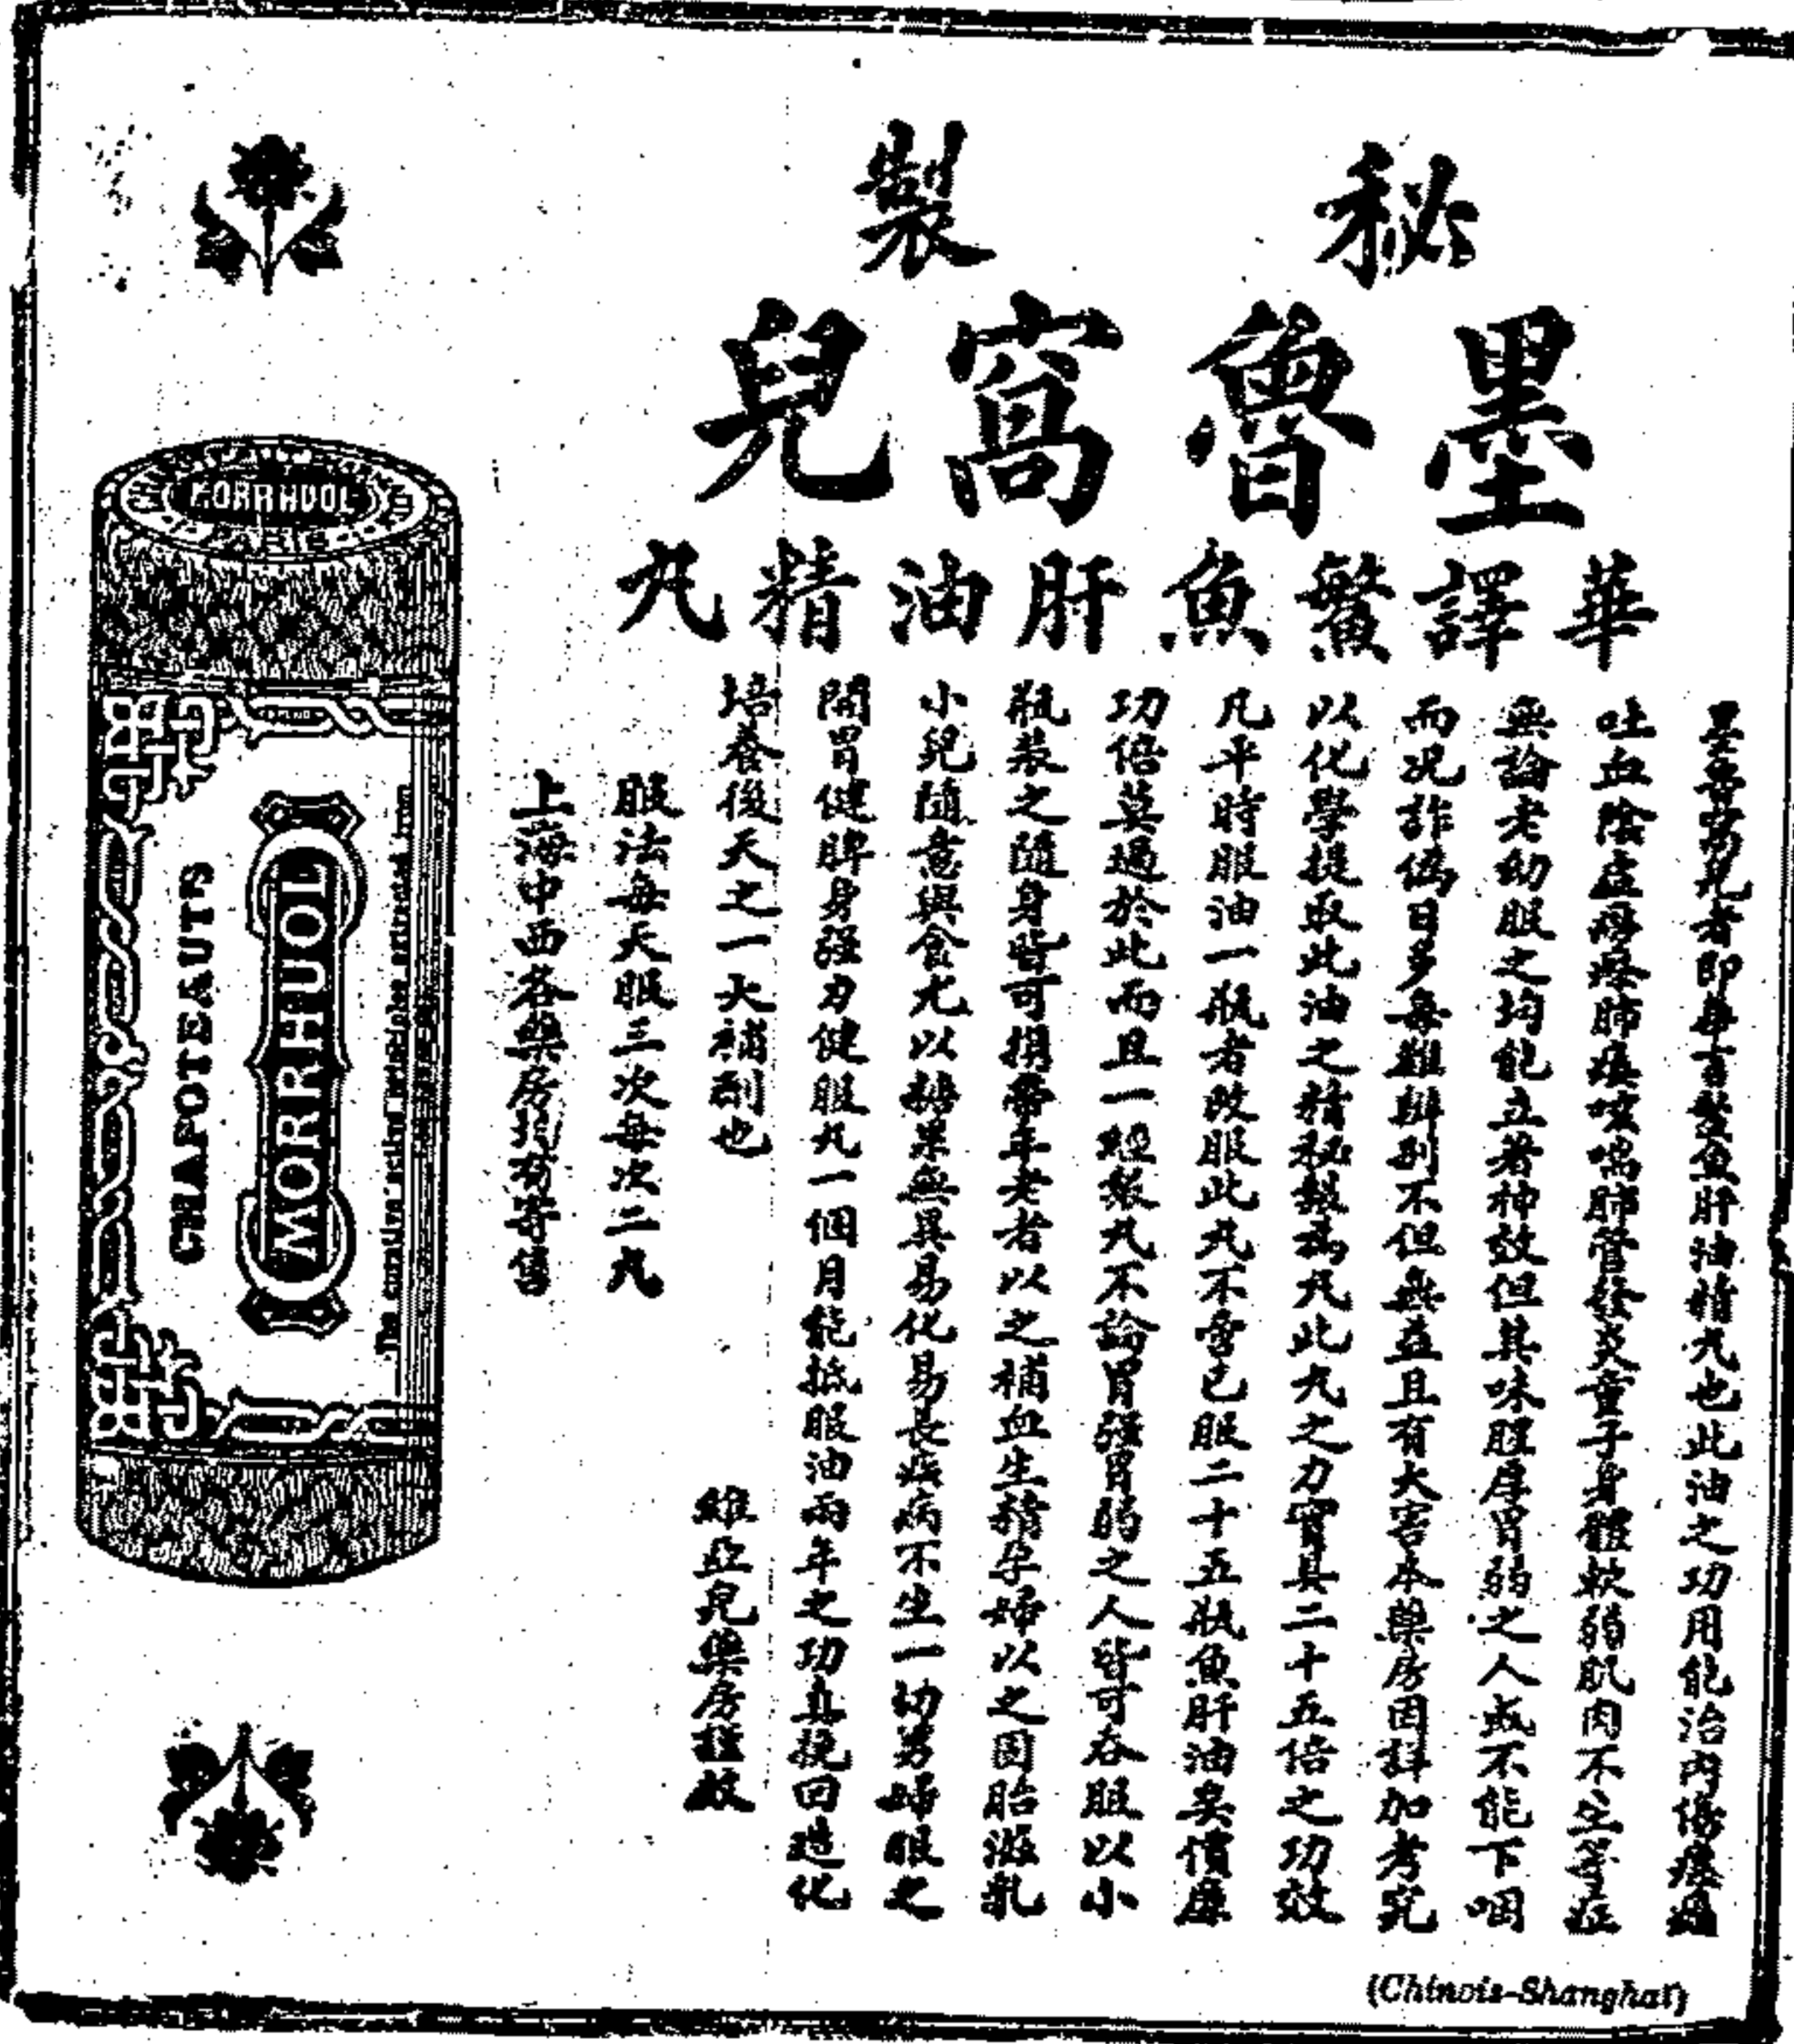 秘製
墨魯窩兒
華譯鰵魚肝油精丸
墨魯窩兒者即華言鰵魚肝油精丸也此油之功用能治內傷痰
吐血陰虛癆瘵肺痰咳喘肺管發炎童子身體軟弱肌肉不生等症
無論老幼服之均能立著神效但其味腥厚胃弱之人或不能下咽
而况詐偽日多每難辨別不但無益且有大害本藥房因詳加考究
以化學提取此油之精秘製為丸此丸之力實具二十五倍之功效
凡平時服油一瓶者改服此丸不啻已服二十五瓶魚肝油矣價廉
功倍莫過於此而且一經製丸不論胃强胃弱之人皆可吞服以小
瓶裝之隨身皆可攜帶年老者以之補血生精孕婦以之固胎滋乳
小兒隨意與食尤以糖菓無異易化易長疾病不生一切男婦服之
開胃健脾身强力健服丸一個月能抵服油兩年之功真挽回造化
培養後天之一大補劑也
維亞兒藥房謹啟
服法每天服三次每次二丸
上海中西各藥房均有寄售
MORRHUOL
PARIS
CHAPOTEAUTS
MORRHUOL
The curative active principles extracted from
(Chinois-Shanghai)